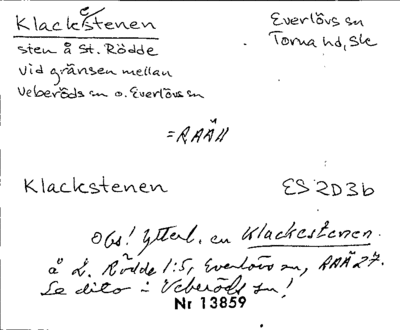 Klackestenen
Everlövs sn
Torna hd, Sk
sten å St. Rödde
vid gränsen mellan
Veberöds sn o. Everlövs sn
=RAÄ 11
Klackstenen
ES 2D3b
Obs! Ytterl. en Klackestenen.
å L. Rödde 1:5, Everlövs sn, RAÄ 27.
Se dito i Veberöds sn!
Nr 13859